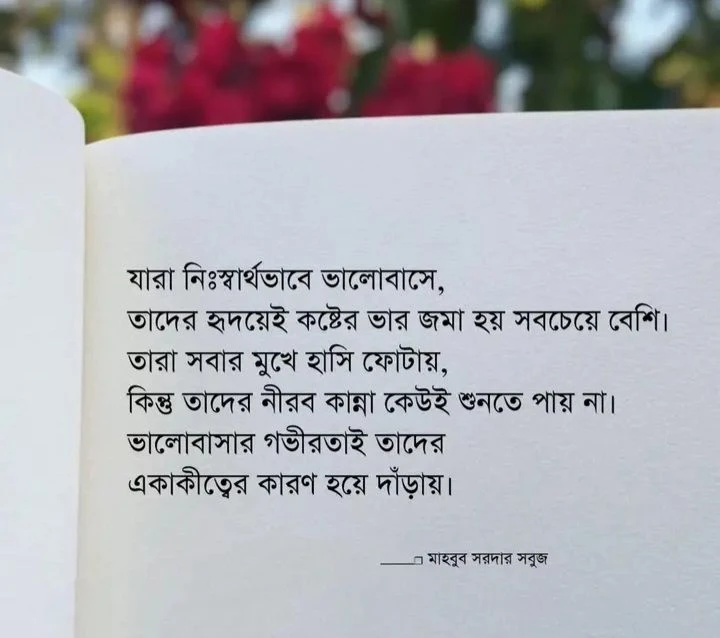 যারা নিঃস্বার্থভাবে ভালোবাসে,
তাদের হৃদয়েই কষ্টের ভার জমা হয় সবচেয়ে বেশি।
তারা সবার মুখে হাসি ফোটায়,
কিন্তু তাদের নীরব কান্না কেউই শুনতে পায় না।
ভালোবাসার গভীরতাই তাদের
একাকীত্বের কারণ হয়ে দাঁড়ায়।
____□ মাহবুব সরদার সবুজ